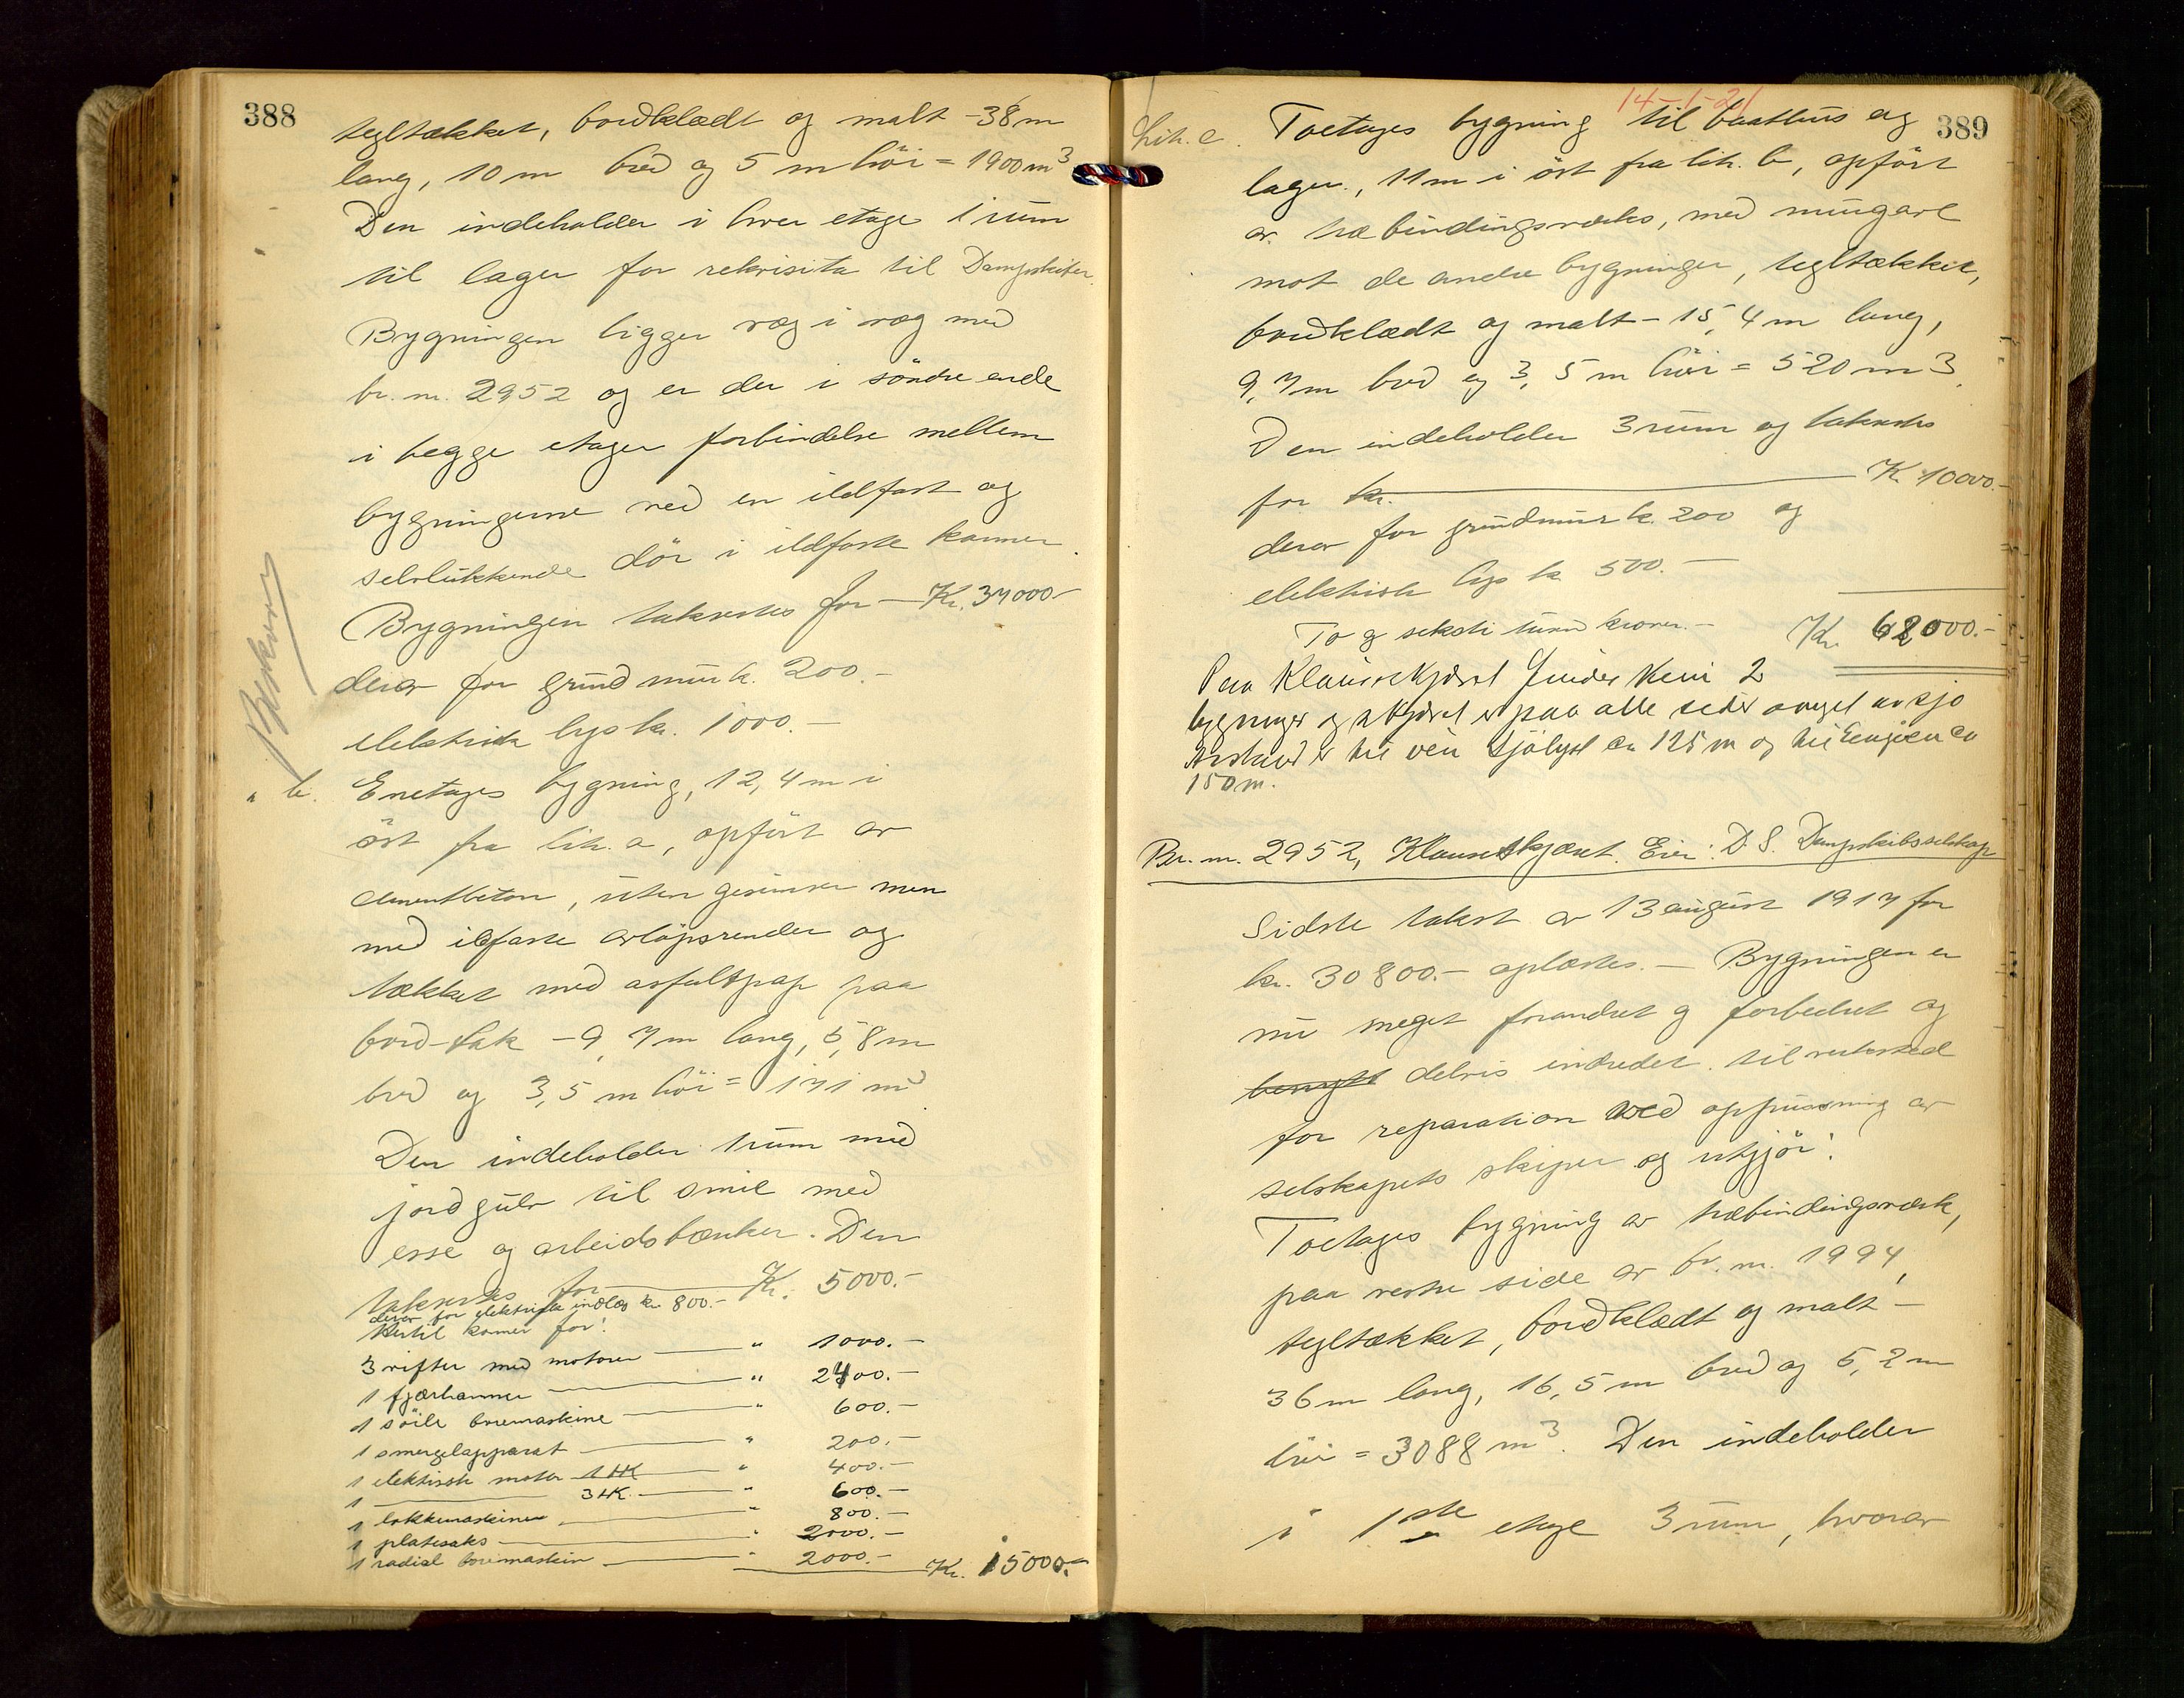 388
tegltækket, bordklædt og malt - 38 m
lang, 10 m bred og 5 m høi = 1900 m³
Den indeholder i hver etage 1 rum
til lager for rekvisita til Dampskiber.
Bygningen ligger væg i væg med
br. nr. 2952 og er der i søndre ende
i begge etager forbindelse mellem
bygningerne ved en ildfast og
selvlukkende dör i ildfaste karmer.
Bygningen taksertes for — Kr. 37000.-
derav for grundmur k. 200.-
elektrisk lys kr. 1000.-
" b. Enetages bygning, 12,4 m i
öst fra lit. a, opfört av
cementbeton, uten gesimser men
med ildfaste avlöpsrender og
tækket med asfaltpap paa
bord-tak - 9,7 m lang, 5,8 m
bred og 3,5 m høi = 171 m³
Den indeholder 1 rum med
jordgulv til smie med
esse og arbeidsbænker. Den
taksertes for — Kr. 5000.-
derav for elektriske indlæg kr 800.-
Hertil kommer for:
3 vifter med motorer — " 1000.-
1 fjærhammer — " 2400.-
1 söile boremaskine — " 600.-
1 smergelapparat — " 200.-
1 elektrisk motor 1 HK — " 400.-
1 — 3 HK. — " 600.-
1 lokkemaskine — " 800.-
1 platesaks — " 2000.-
1 radial boremaskin — " 2000.- Kr. 15000.-
14-1-21
389
Lit. c. Toetages bygning til baathus og
lager., 11 m i öst fra lit. b, opfört
av træbindingsverks, med murgavl
mot de andre bygninger, tegltækket,
bordklædt og malt - 15,4 m lang,
9,7 m bred og 3,5 m høi = 520 m3.
Den indeholder 3 rum og taksertes
for kr. — K. 10000.-
derav for grundmur k. 200 og
elektrisk lys k. 500.-
To og seksti tusen kroner.- Kr. 62000.-
Paa Klausskjæret findes kun 2
bygninger og skjæret er paa alle sider omgit av sjø
Avstand er til Sjölyst ca 125 m og til Engøen ca
150 m.
Br. nr. 2952, Klauseskjæret. Eier: D. S. Dampskibsselskap
Sidste takst av 13 august 1917 for
kr. 30800.- oplæstes. - Bygningen er
nu meget forandret og forbedret og
benyttet delvis indredet til verksted
for reparation ved oppussning av
selskapets skiper og utgjör:
Toetages bygning av træbindingsverk,
paa vestre side av br. nr. 1994,
tegltækket, bordklædt og malt -
36 m lang, 16,5 m bred og 5,2 m
høi = 3088 m³. Den indeholder
i 1ste etage 3 rum, hvorav